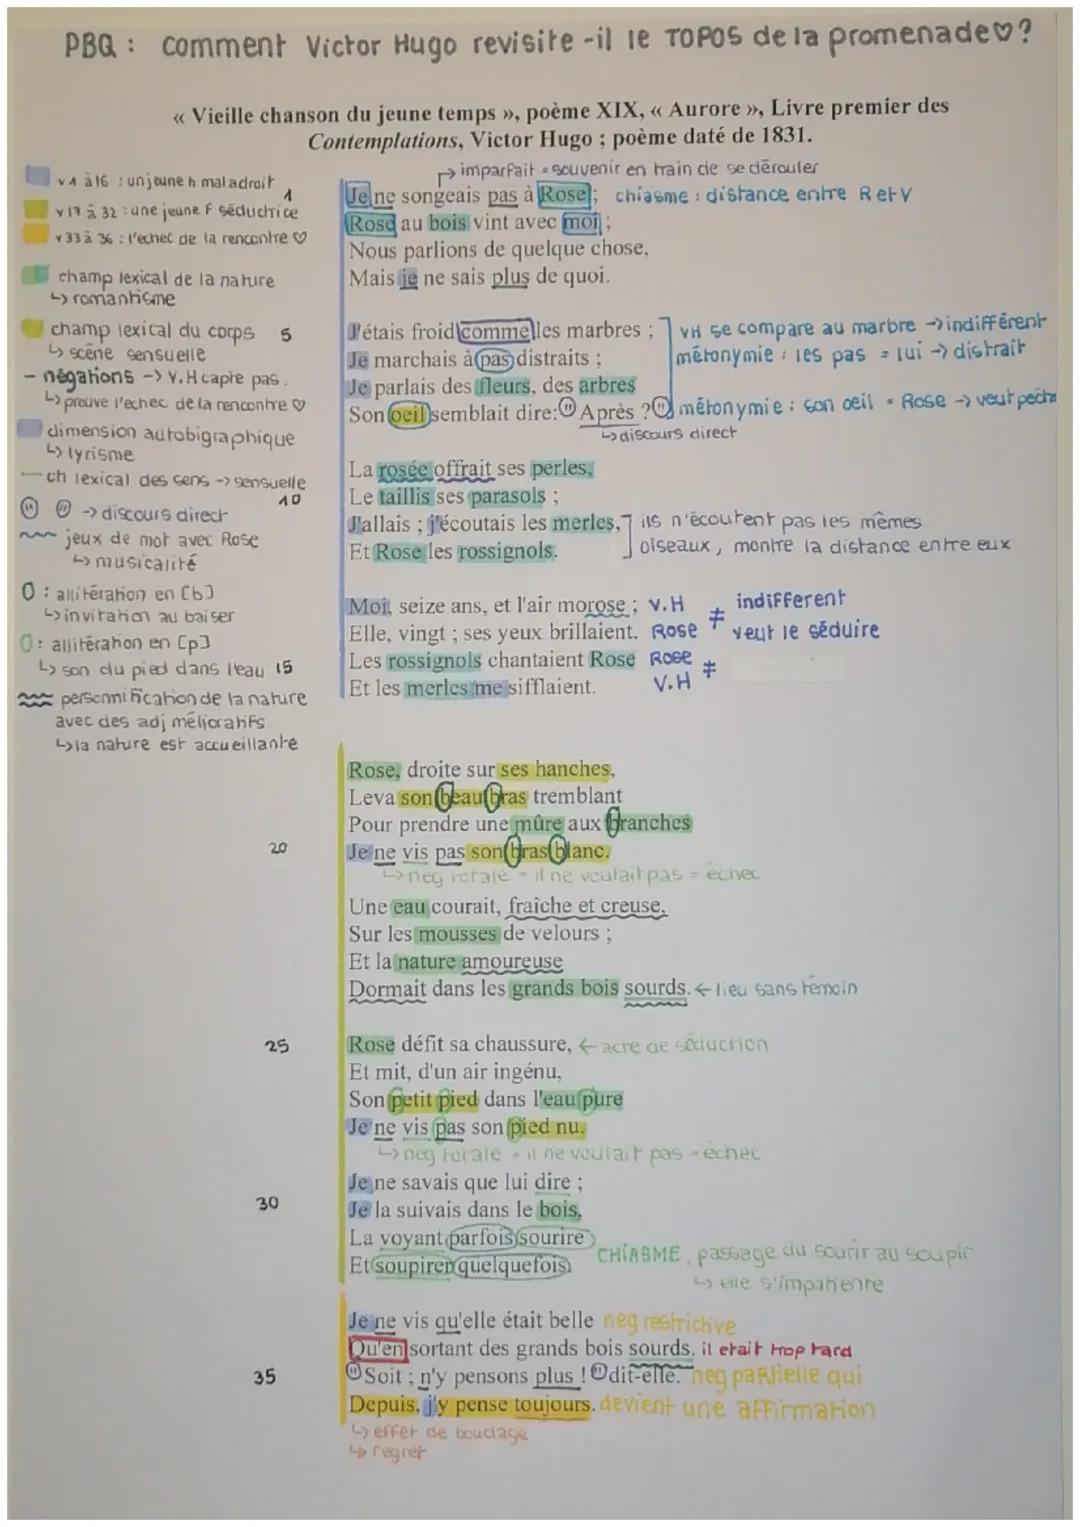 PBQ : comment Victor Hugo revisite-il le TOPOS de la promenade♡?
« Vieille chanson du jeune temps », poème XIX, « Aurore », Livre premier des
Contemplations, Victor Hugo ; poème daté de 1831.
v1 à 16 : un jeune h maladroit
v 17 à 32 : une jeune F séductrice
v 33 à 36 : l'echec de la rencontre ♡
champ lexical de la nature
↳ romantisme
champ lexical du corps
↳ scène sensuelle
- négations -> V.H capte pas.
↳ preuve l'echec de la rencontre ♡
dimension autobigraphique
↳ lyrisme
ch lexical des sens -> sensuelle
-> discours direct
jeux de mot avec Rose
↳ musicalité
O : allitération en [b]
↳ invitation au baiser
O : allitération en [p]
↳ son du pied dans l'eau
personnification de la nature
avec des adj mélioratifs
↳ la nature est accueillante
↱ imparfait = souvenir en train de se dérouler
1
Je ne songeais pas à Rose ; chiasme : distance entre R et V
Rose au bois vint avec moi ;
Nous parlions de quelque chose,
Mais je ne sais plus de quoi.
5
J'étais froid comme les marbres ; VH se compare au marbre -> indifférent
Je marchais à pas distraits ; métonymie : les pas = lui -> distrait
Je parlais des fleurs, des arbres
Son oeil semblait dire: " Après ? " métonymie : son oeil = Rose -> veut pecho
↳ discours direct
La rosée offrait ses perles,
10
Le taillis ses parasols ;
J'allais ; j'écoutais les merles, ils n'écoutent pas les mêmes
Et Rose les rossignols. oiseaux, montre la distance entre eux
Moi, seize ans, et l'air morose ; V.H ≠ indifferent
Elle, vingt ; ses yeux brillaient. Rose veut le séduire
15
Les rossignols chantaient Rose Rose ≠
Et les merles me sifflaient. V.H
Rose, droite sur ses hanches,
Leva son beau bras tremblant
Pour prendre une mûre aux branches
20
Je ne vis pas son bras blanc.
↳ neg totale = il ne voulait pas = echec
Une eau courait, fraîche et creuse,
Sur les mousses de velours ;
Et la nature amoureuse
Dormait dans les grands bois sourds. ← lieu sans témoin
25
Rose défit sa chaussure, ← acte de séduction
Et mit, d'un air ingénu,
Son petit pied dans l'eau pure
Je ne vis pas son pied nu.
↳ neg totale = il ne voulait pas = echec
Je ne savais que lui dire ;
30
Je la suivais dans le bois,
La voyant parfois sourire
Et soupirer quelquefois. CHIASME, passage du sourir au soupir
↳ elle s'impatiente
Je ne vis qu'elle était belle neg restrictive
Qu'en sortant des grands bois sourds. il etait trop tard
35
" Soit ; n'y pensons plus ! " dit-elle. neg partielle qui
Depuis, j'y pense toujours. devient une affirmation
↳ effet de bouclage
↳ regret